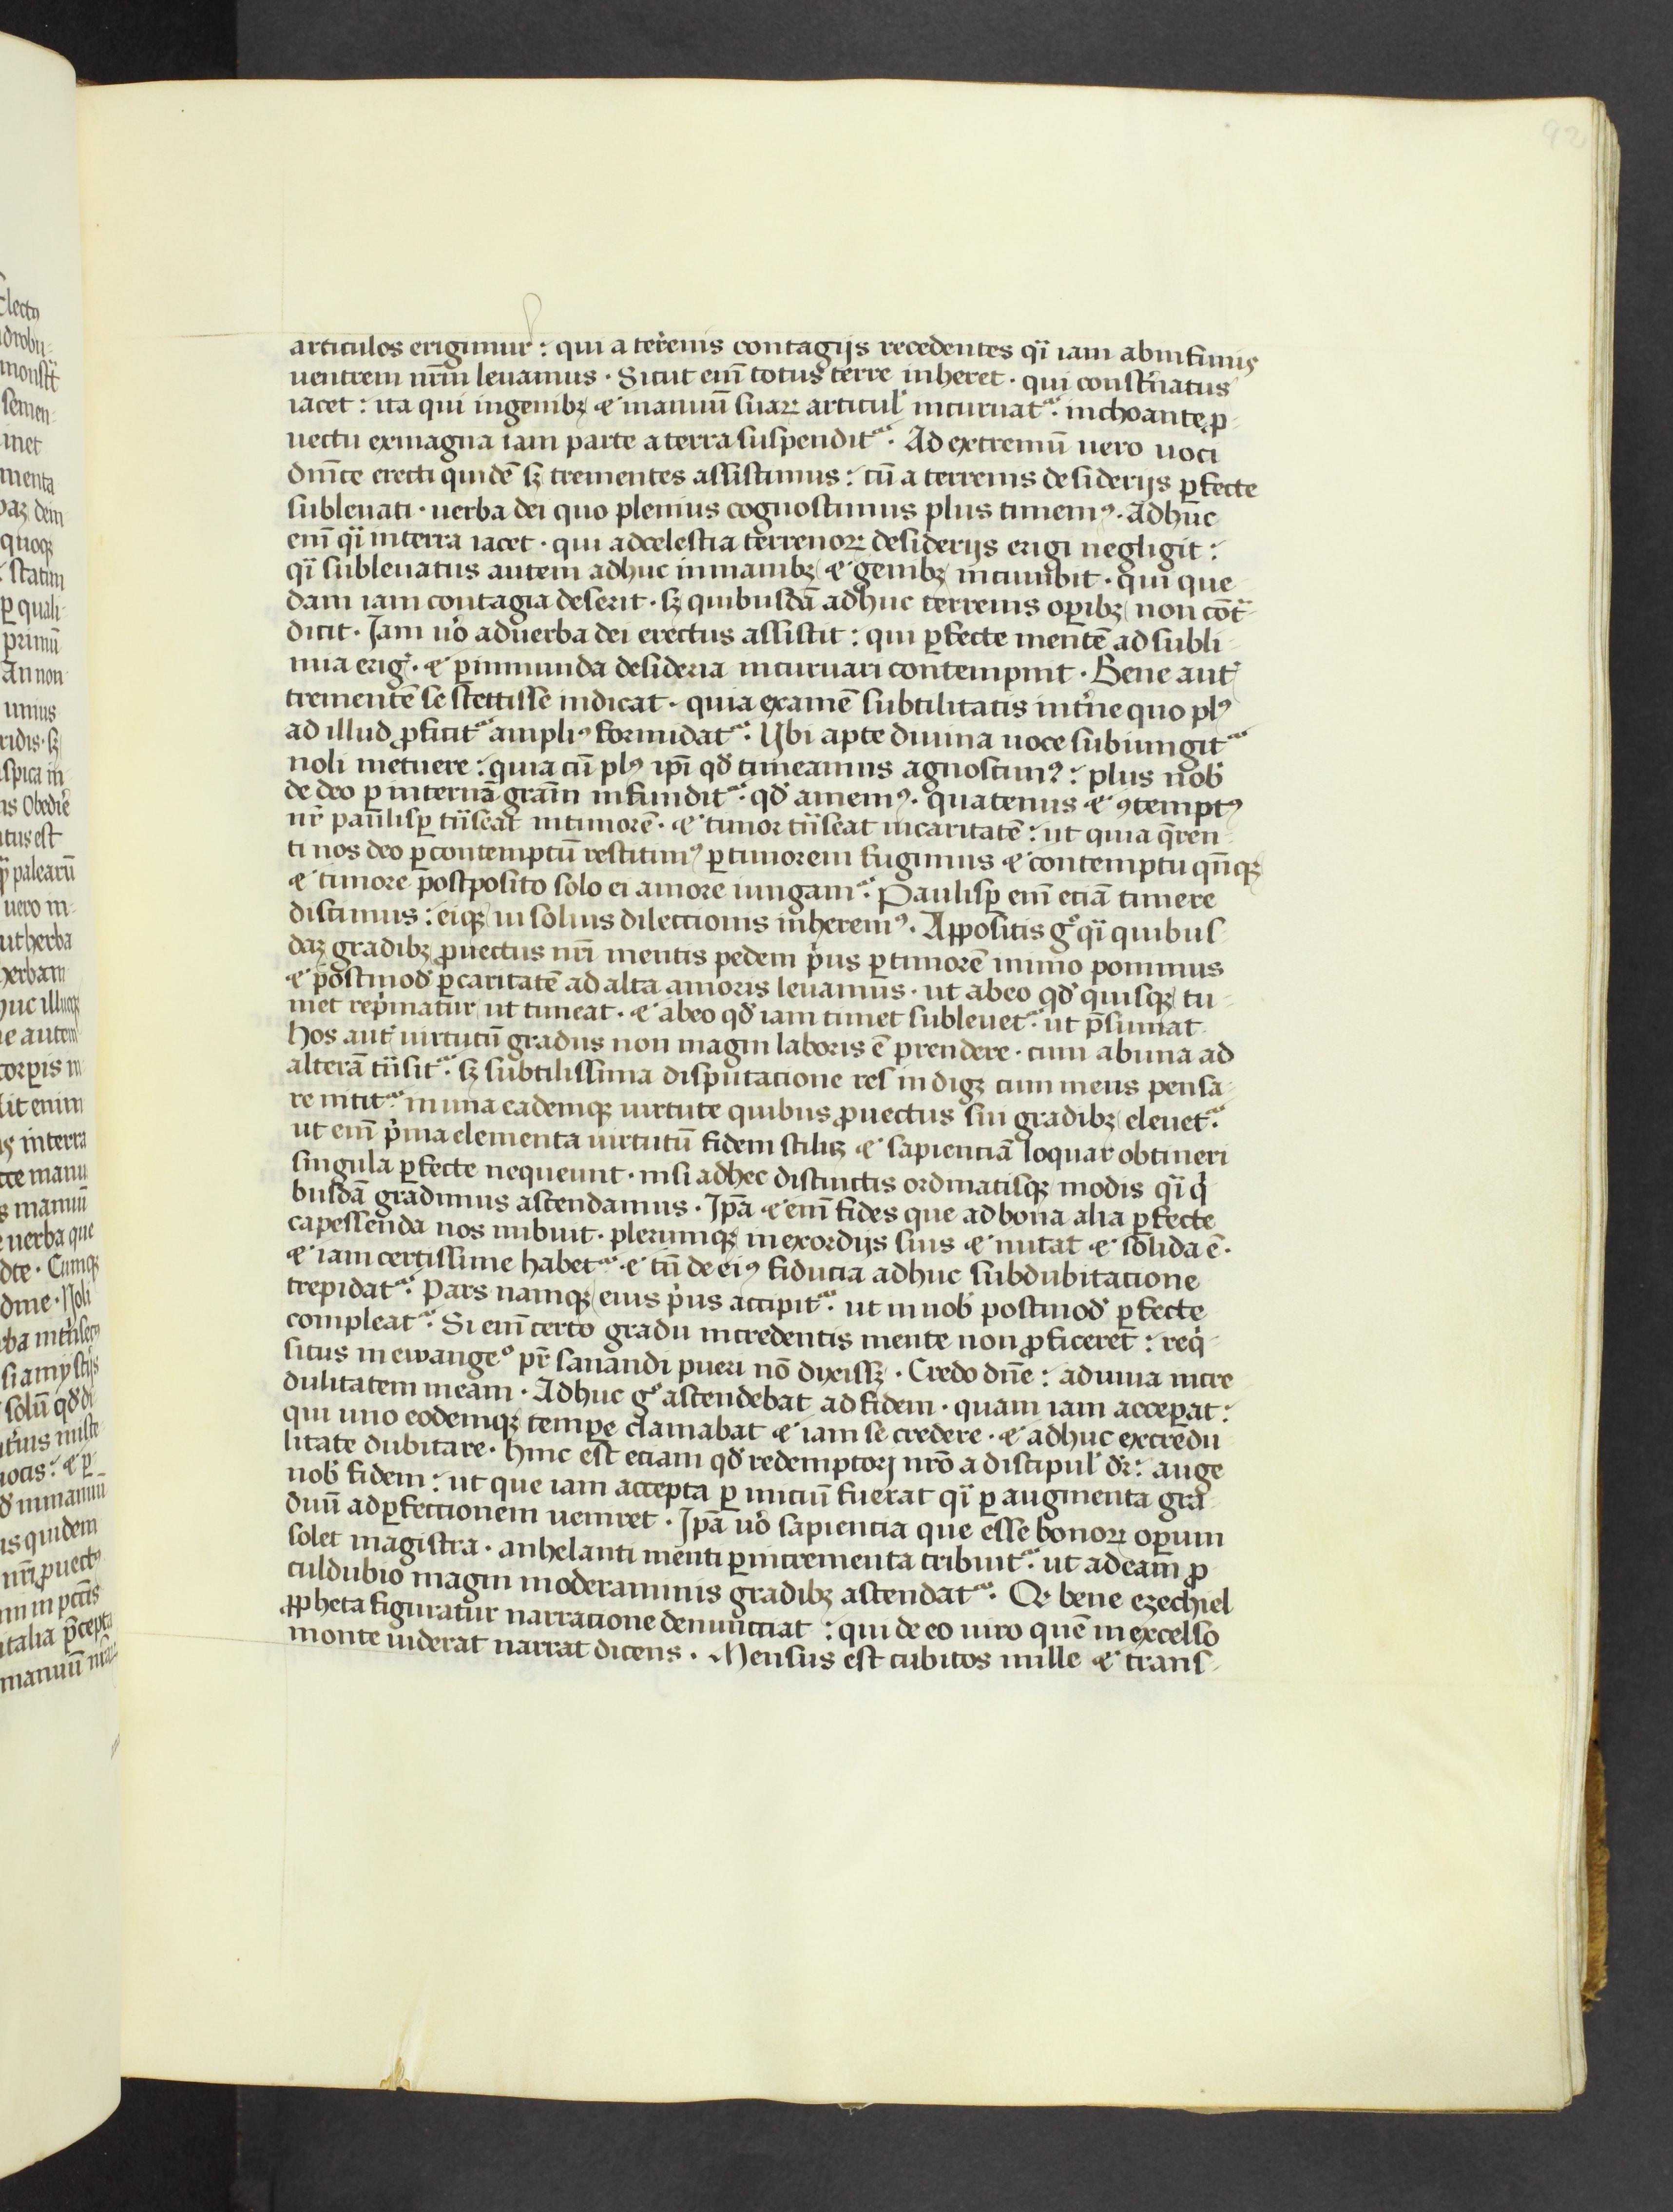 92
articulos erigimur : qui a terrenis contagijs recedentes qͥ iam ab infimis
uentrem nr̄m leuamus · Sicut eni̅ totus terre inheret · qui consternatus
iacet : ita qui in genibꝫ ⁊ manuū suaꝝ articul' incuruat᷑ · inchoante ꝓ-
uectu ex magna iam parte a terra suspendit᷑ · Ad extremū uero uoci
dnīce erecti quidē sꝫ trementes assistimus : cū a terrenis desiderijs ꝑfecte
subleuati · uerba dei quo plenius cognoscimus plus timemꝰ · Adhuc
eni̅ qͥ in terra iacet · qui ad celestia terrenoꝝ desiderijs erigi negligit :
qͥ subleuatus autem adhuc in manibꝫ ⁊ genibꝫ incumbit · qui que-
dam iam contagia deserit · sꝫ quibusdā adhuc terrenis oꝑibꝫ non cōt͛-
dicit · Jam uo̕ ad uerba dei erectus assistit : qui ꝑfecte mentē ad subli-
mia erig̕ · ⁊ ꝑ inmunda desideria incuruari contempnit · Bene aut̕
trementē se stettisse indicat · quia examē subtilitatis int̕ne quo plꝰ
ad illud ꝓficit᷑ ampliꝰ formidat᷑ · Vbi apte diuina uoce subiungit᷑
noli metuere : quia cū plꝰ ip̄i qd̕ timeamus agnoscimꝰ : plus nob̕
de deo ꝑ internā gr̄am infundit᷑ · qd̕ amemꝰ · quatenus ⁊ ꝯtemptꝰ
nr̄ paulisꝑ tͣnseat in timorē · ⁊ timor tͣnseat in caritatē : ut quia q̄ren-
ti nos deo ꝑ contemptū restitimꝰ ꝑ timorem fugimus ⁊ contemptu qn̄qꝫ
⁊ timore postposito solo ei amore iungam᷑ · Paulisꝑ eni̅ etiā timere
discimus : eiqꝫ ui solius dilectionis inheremꝰ · Appositis gͦ qͥ quibus-
daꝫ gradibꝫ ꝓuectus nr̄i mentis pedem pͥus ꝑ timorē in imo ponimus
⁊ postmod̕ ꝑ caritatē ad alta amoris leuamus · ut ab eo qd̕ quisqꝫ tu-
met repͥmatur ut timeat · ⁊ ab eo qd̕ iam timet subleuet᷑ · ut p̄sumat ·
Hos aut̕ uirtutū gradus non magni laboris ē prendere · cum ab una ad
alterā tͣnsit᷑ · sꝫ subtilissima disputacione res indigꝫ cum mens pensa-
re nitit᷑ in una eademqꝫ uirtute quibus ꝓuectus sui gradibꝫ eleuet᷑ ·
ut eni̅ pͥma elementa uirtutū fidem scilicꝫ ⁊ sapienciā loquar obtineri
singula ꝑfecte nequeunt · nisi ad hec distinctis ordinatisqꝫ modis qͥ qͥ-
busdā gradimus ascendamus · Jp̄a ⁊ eni̅ fides que ad bona alia ꝑfecte
capessenda nos imbuit · plerumqꝫ in exordijs suis ⁊ nutat ⁊ solida ē ·
⁊ iam certissime habet᷑ · ⁊ tn̄ de eiꝰ fiducia adhuc sub dubitacione
trepidat᷑ · Pars namqꝫ eius pͥus accipit᷑ · ut in nob̕ postmod̕ ꝑfecte
compleat᷑ · Si eni̅ certo gradu in credentis mente non ꝓficeret : reqͥ-
situs in ewangeͦ pr̄ sanandi pueri nō dixissꝫ · Credo dn̄e : adiuua incre-
dulitatem meam · Adhuc gͦ ascendebat ad fidem · quam iam acceꝑat :
qui uno eodemqꝫ temꝑe clamabat ⁊ iam se credere · ⁊ adhuc ex credu-
litate dubitare · Hinc est etiam qd̕ redemptorj nr̄o a discipul' dr̄ : auge
nob̕ fidem : ut que iam accepta ꝑ iniciū fuerat qͥ ꝑ augmenta gra-
duū ad ꝑfeccionem ueniret · Jp̄a uo̕ sapiencia que esse bonoꝝ oꝑum
solet magistra · anhelanti menti ꝑ incrementa tribuit᷑ · ut ad eam ꝓ-
culdubio magni moderaminis gradibꝫ ascendat᷑ · Qͦ bene ezechiel
ꝓpheta figuratur narracione denunctiat : qui de eo uiro quē in excelso
monte uiderat narrat dicens · Mensus est cubitos mille ⁊ trans-